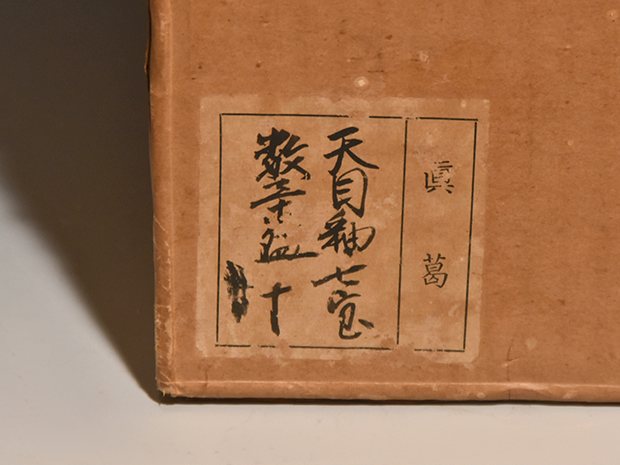 眞葛
天目釉七宝
数茶盌 十